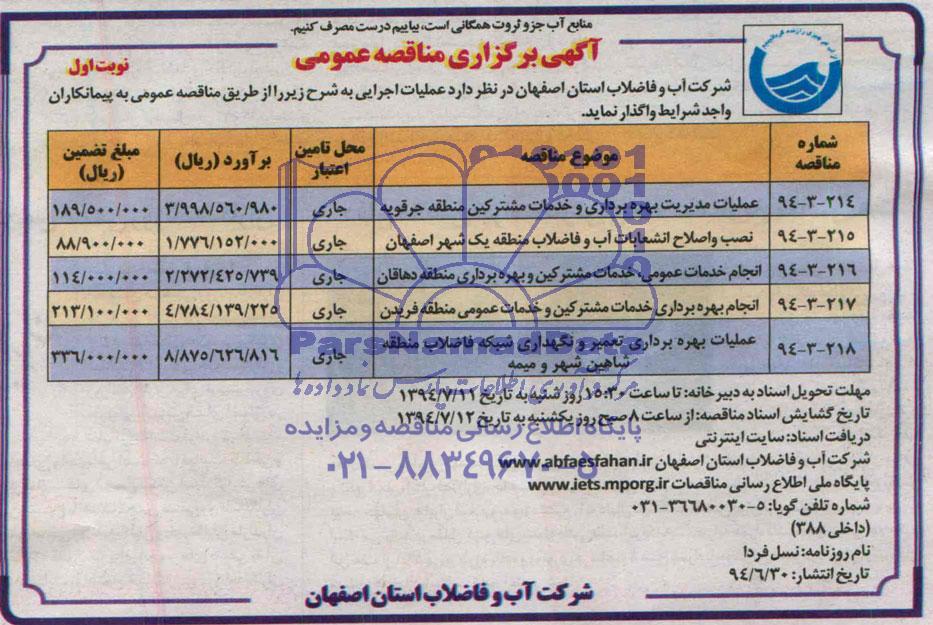 منابع آب جزو ثروت همگانی است، بیاییم درست مصرف کنیم.
آگهی برگزاری مناقصه عمومی
نوبت اول
شرکت آب و فاضلاب استان اصفهان در نظر دارد عملیات اجرایی به شرح زیر را از طریق مناقصه عمومی به پیمانکاران
واجد شرایط واگذار نماید.
شماره مناقصه موضوع مناقصه محل تامین اعتبار برآورد (ریال) مبلغ تضمین (ریال)
۹۴-۳-۲۱۴ عملیات مدیریت بهره برداری و خدمات مشترکین منطقه جرقویه جاری ۳/۹۹۸/۵۶۰/۹۸۰ ۱۸۹/۵۰۰/۰۰۰
۹۴-۳-۲۱۵ نصب واصلاح انشعابات آب و فاضلاب منطقه یک شهر اصفهان جاری ۱/۷۷۶/۱۵۲/۰۰۰ ۸۸/۹۰۰/۰۰۰
۹۴-۳-۲۱۶ انجام خدمات عمومی، خدمات مشترکین و بهره برداری منطقه دهاقان جاری ۲/۲۷۲/۴۲۵/۷۳۹ ۱۱۴/۰۰۰/۰۰۰
۹۴-۳-۲۱۷ انجام بهره برداری خدمات مشترکین و خدمات عمومی منطقه فریدن جاری ۴/۷۸۴/۱۳۹/۲۲۵ ۲۱۳/۱۰۰/۰۰۰
۹۴-۳-۲۱۸ عملیات بهره برداری تعمیر و نگهداری شبکه فاضلاب منطقه شاهین شهر و میمه جاری ۸/۸۷۵/۶۲۶/۸۱۶ ۳۳۶/۰۰۰/۰۰۰
ParsNamadData
مرکز فرآوری اطلاعات پارس نماد داده ها
مهلت تحویل اسناد به دبیر خانه: تا ساعت ۱۵:۳۰ روز شنبه به تاریخ ۱۳۹۴/۷/۱۱
تاریخ گشایش اسناد مناقصه: از ساعت ۸ صبح روز یکشنبه به تاریخ ۱۳۹۴/۷/۱۲
پایگاه اطلاع رسانی مناقصه و مزایده
دریافت اسناد: سایت اینترنتی
شرکت آب و فاضلاب استان اصفهان www.abfaesfahan.ir
۰۲۱-۸۸۳۴۹۶۷۰-۵
پایگاه ملی اطلاع رسانی مناقصات www.iets.mporg.ir
شماره تلفن گویا: ۵-۰۳۱-۳۶۶۸۰۰۳۰
(داخلی ۳۸۸)
نام روزنامه: نسل فردا
تاریخ انتشار: ۹۴/۶/۳۰
شرکت آب و فاضلاب استان اصفهان